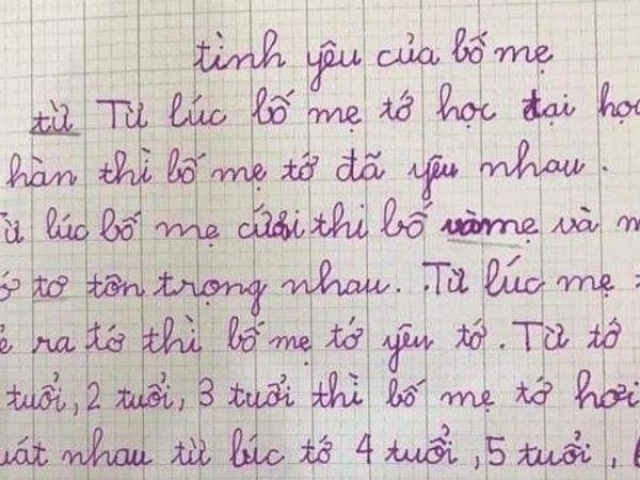 tình yêu của bố mẹ
từ Từ lúc bố mẹ tớ học đại học
hàn thì bố mẹ tớ đã yêu nhau.
lúc bố mẹ cưới thì bố và mẹ và
tơ tôn trọng nhau. Từ lúc mẹ
ra tớ thì bố mẹ tớ yêu tớ. Từ tớ
tuổi, 2 tuổi, 3 tuổi thì bố mẹ tớ hơi
nhau từ lúc tớ 4 tuổi, 5 tuổi,